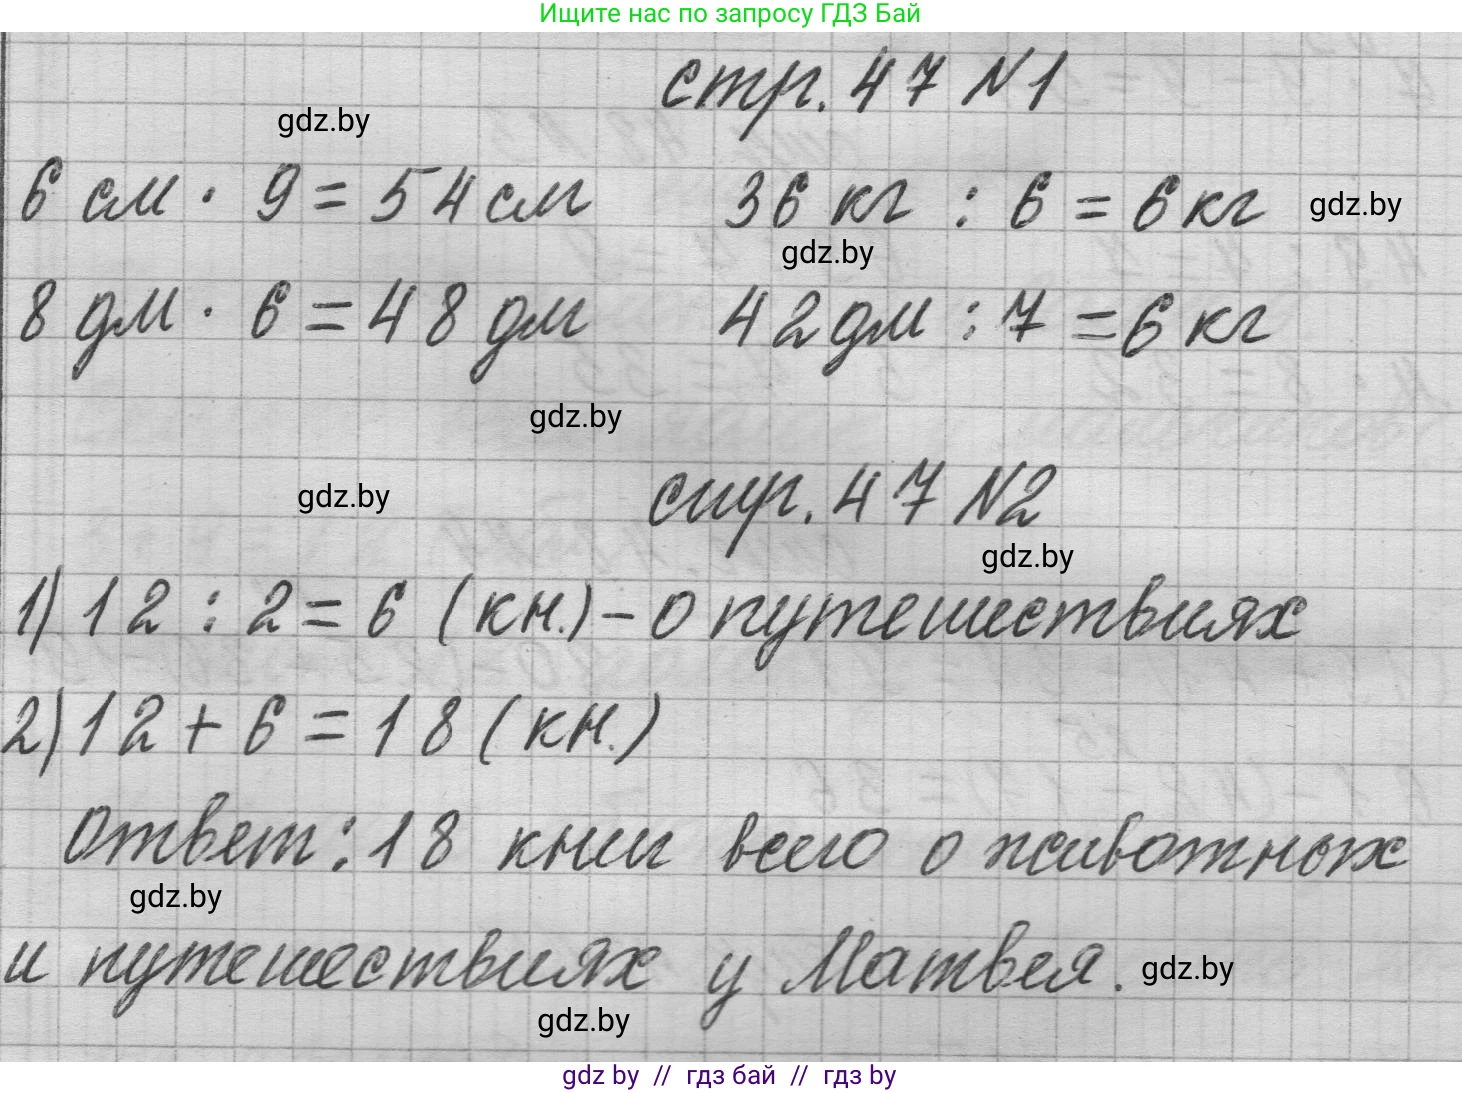 Ищите нас по запросу ГДЗ Бай
стр. 47 N1
gdz.by
6 см · 9 = 54 см 36 кг : 6 = 6 кг gdz.by
gdz.by
8 дм · 6 = 48 дм 42 дм : 7 = 6 кг
gdz.by
gdz.by стр. 47 N2
gdz.by
1) 12 : 2 = 6 (кн.) - о путешествиях
2) 12 + 6 = 18 (кн.)
Ответ: 18 книг всего о животных
gdz.by
и путешествиях у Матвея. gdz.by
gdz.by
gdz by // гдз бай // гдз by